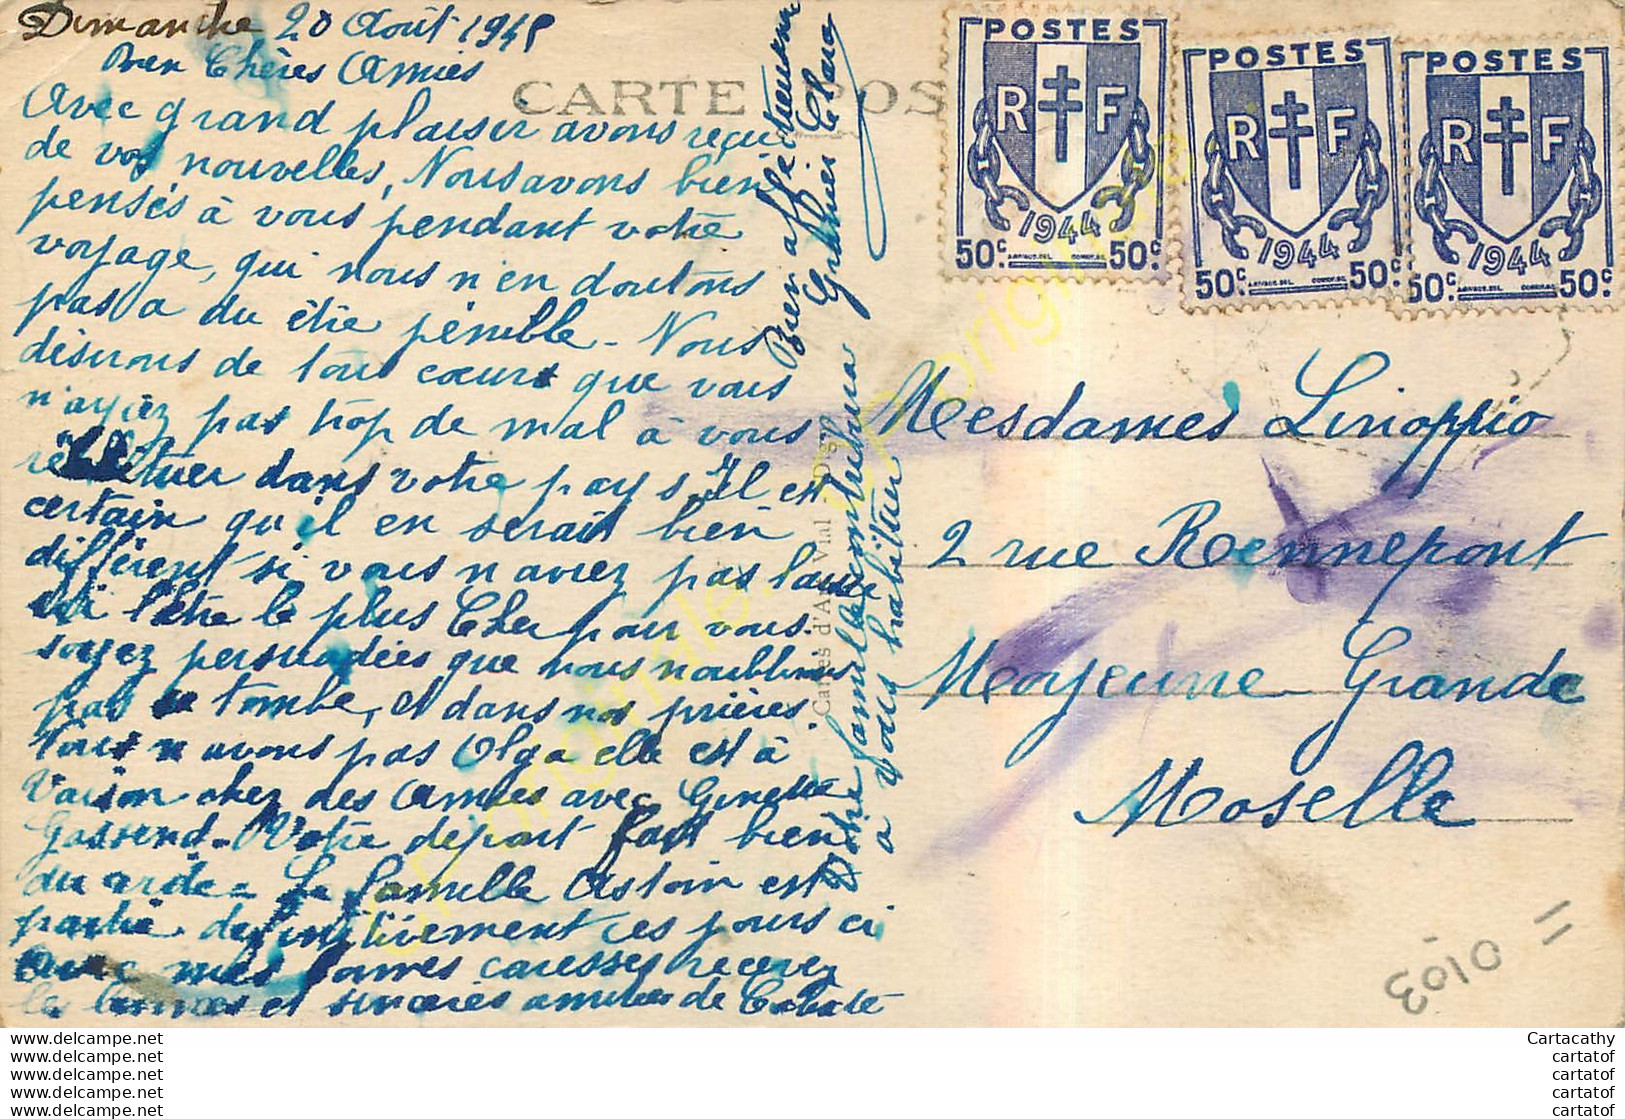 Dimanche 20 Août 1945
Bien Chères Amies
Avec grand plaisir avons reçu
de vos nouvelles, Nous avons bien
pensés à vous pendant votre
voyage, qui nous n'en doutons
pas a du être pénible - Nous
désirons de tout coeur que vous
n'ayiez pas trop de mal à vous
dans votre pays, Il est
certain qu'il en serait bien
différent si vous n'aviez pas laissé
ici l'être le plus Cher pour vous.
soyez persuadées que nous n'oublions
pas sa tombe, et dans nos prières.
Nous n'avons pas Olga elle est à
Vaison chez des amies avec Ginette
Gassend - Votre départ fait bien
du vide - La famille Astoin est
partie définitivement ces jours ci
Avec mes bonnes caresses recevez
les bonnes et sincères amitiés de
Notre famille
a vous habituer
Bien affectueusement
Granier Clara
CARTE POS
Cartes d'Art Vial
POSTES
R F
1944
50c. 50c.
POSTES
R F
1944
50c 50c.
POSTES
R F
1944
50c. 50c.
Mesdames Linoppio
2 rue Rennepont
Moyeuvre Grande
Moselle
E010 11
Cartacathy
cartatof
cartatof
cartatof
cartatof
www.delcampe.net
www.delcampe.net
www.delcampe.net
www.delcampe.net
www.delcampe.net